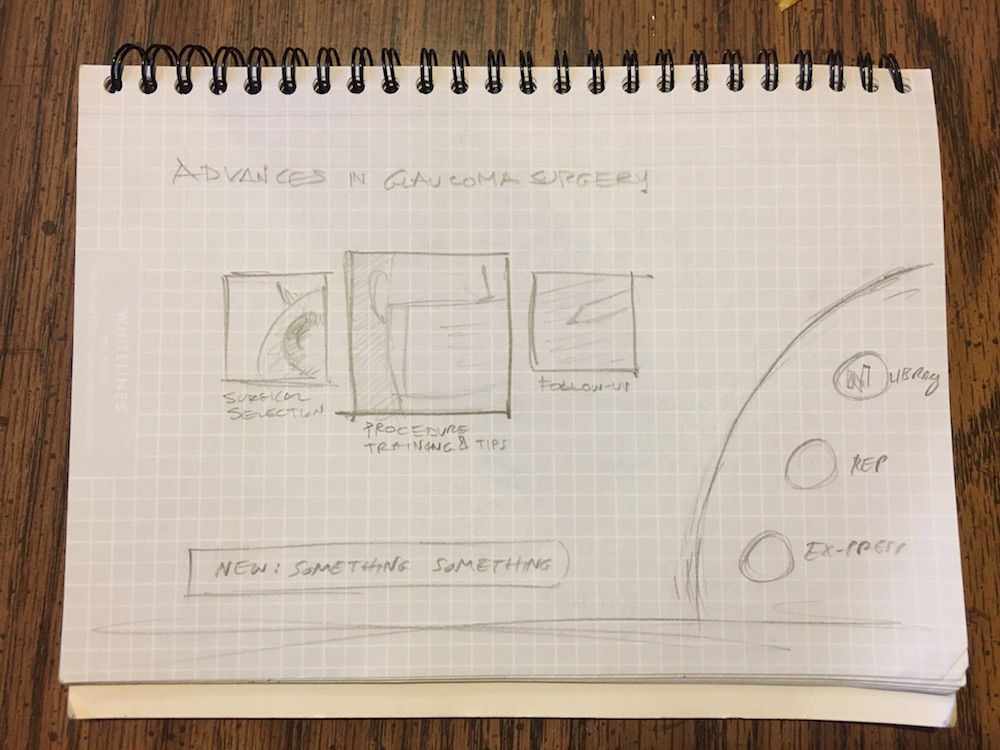 ADVANCES IN GLAUCOMA SURGERY
SURGICAL
SELECTION
PROCEDURE
TRAINING & TIPS
FOLLOW-UP
LIBRARY
REP
EX-PRESS
NEW: SOMETHING SOMETHING
WHITELINES